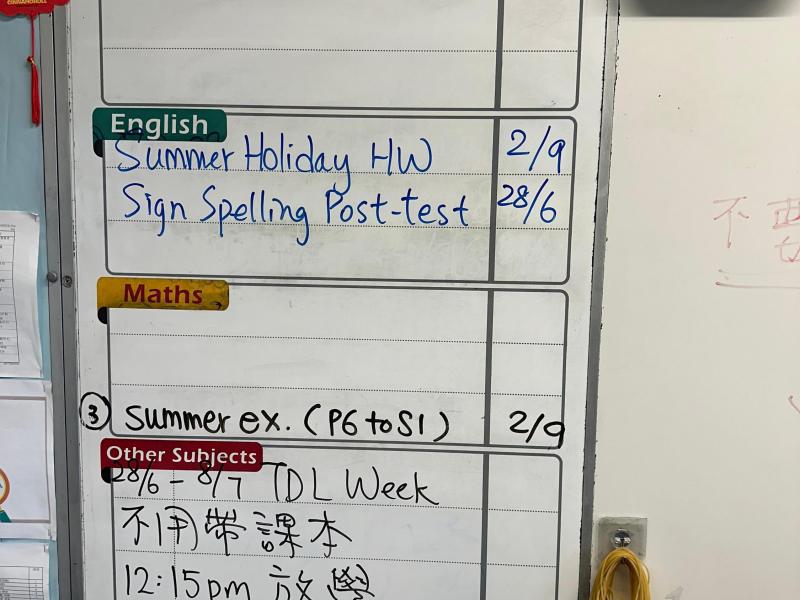 CINNAMOROLL
English
Summer Holiday HW 2/9
Sign Spelling Post-test 28/6
Maths
③ Summer ex. (P6 to S1) 2/9
Other Subjects
28/6 - 8/7 TDL Week
不用帶課本
12:15pm 放學
不要